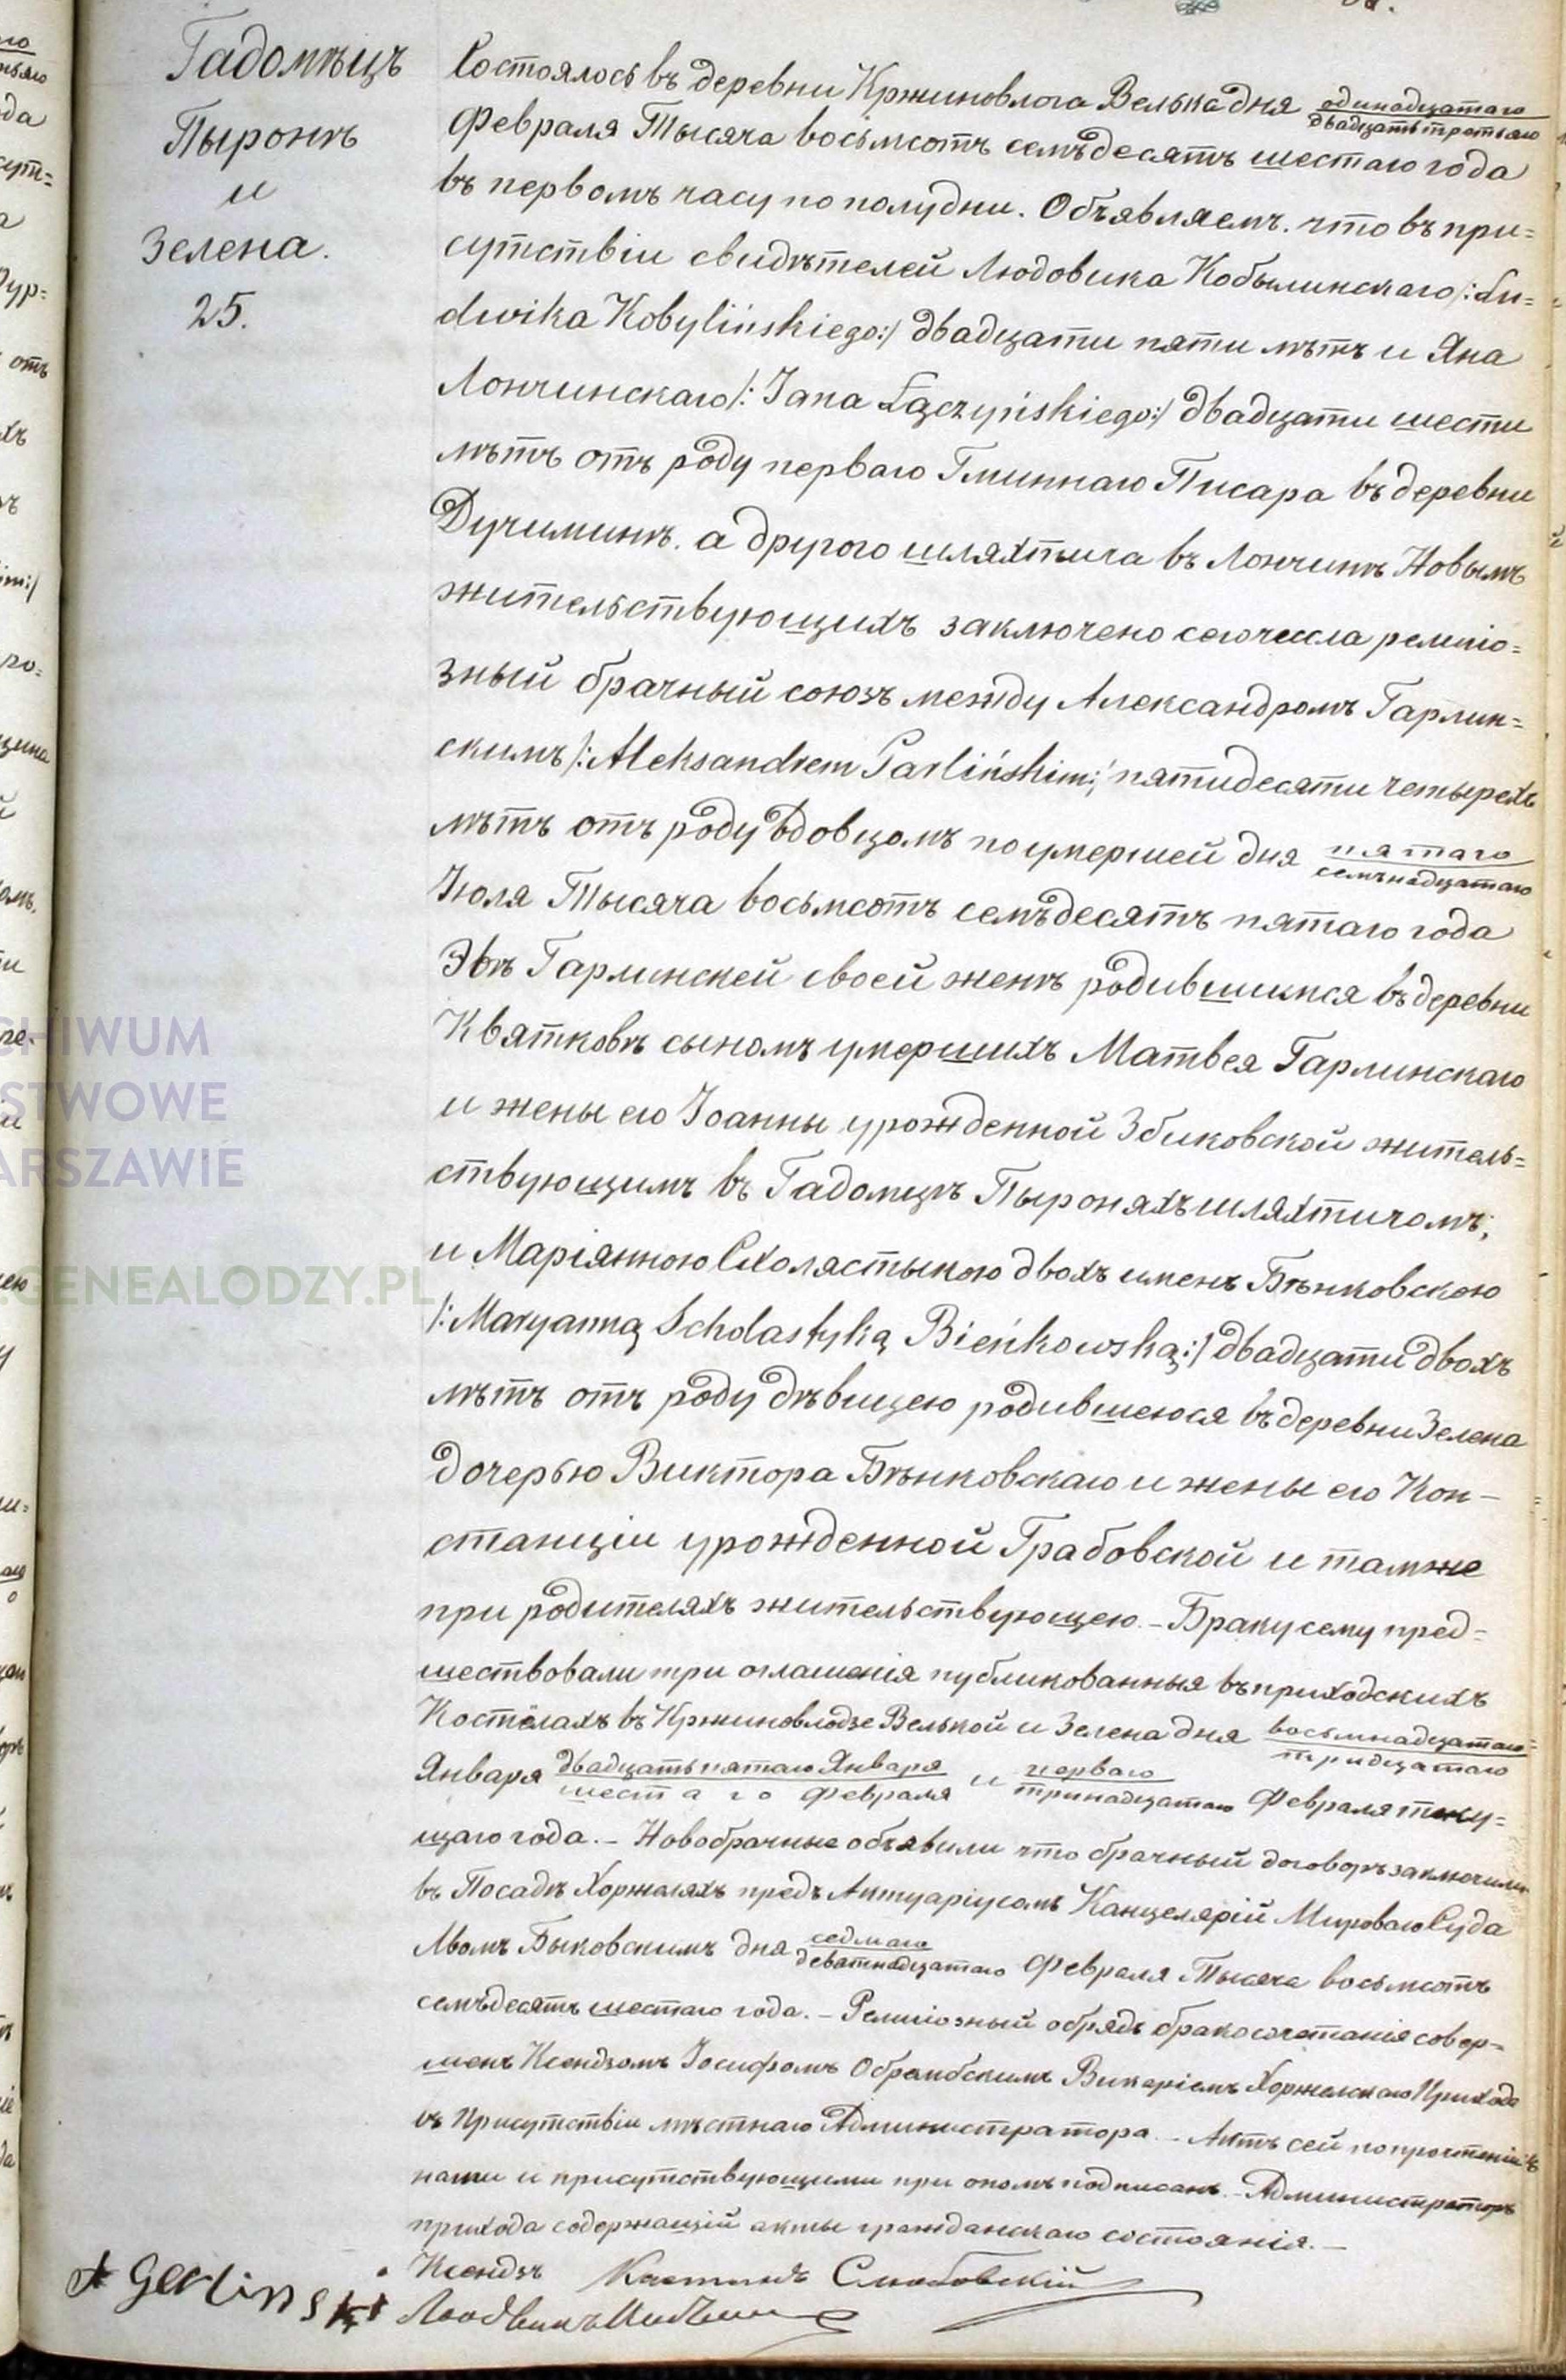 Гадомѣцъ
Пыронѣ
и
Зелена.
25.
Состоялось въ деревни Кржиновлога Велька дня одинадцатаго / двадцать третьяго
Февраля Тысяча восьмсотъ семъдесятъ шестаго года
въ первомъ часу по полудни. Объявляемъ, что въ при=
сутствіи свидѣтелей Людовика Кобылинскаго /: Lu=
dwika Kobylińskiego:/ двадцати пяти лѣтъ и Яна
Лончинскаго /: Jana Łączyńskiego:/ двадцати шести
лѣтъ отъ роду перваго Гминнаго Писара въ деревни
Дучиминѣ, а другого шляхтича въ Лончинѣ Новымъ
жительствующихъ заключено сего числа религіо=
зный брачный союзъ между Александромъ Гарлин=
скимъ /: Aleksandrem Garlińskim:/ пятидесяти четырехъ
лѣтъ отъ роду вдовцомъ по умершей дня пятаго / семънадцатаго
Іюля Тысяча восьмсотъ семъдесятъ пятаго года
Эвѣ Гарлинскей своей женѣ родившимся въ деревни
Квятковѣ сыномъ умершихъ Матвея Гарлинскаго
и жены его Іоанны урожденной Збиковской житель=
ствующимъ въ Гадомцѣ Пыроняхъ шляхтичомъ;
и Маріянною Схолястыкою двохъ именъ Бѣнковскою
/: Maryanną Scholastyką Bieńkowską:/ двадцати двохъ
лѣтъ отъ роду дѣвицею родившеюся въ деревни Зелена
дочерью Виктора Бѣнковскаго и жены его Кон-
станціи урожденной Грабовской и тамже
при родителяхъ жительствующею. - Браку сему пред=
шествовали три оглашенія публикованныя въ приходскихъ
Костелахъ въ Кржиновлодзе Велькой и Зелена дня восьмнадцатаго / тридцатаго
Января двадцать пятаго Января / шестаго Февраля и перваго / тринадцатаго Февраля теку=
щаго года. - Новобрачные объявили что брачный договоръ заключили
въ Посадѣ Хоржеляхъ предъ Актуаріусомъ Канцеляріи Мироваго Суда
Львомъ Быковскимъ дня седмаго / деватнадцатаго Февраля Тысяча восьмсотъ
семъдесятъ шестаго года. - Религіозный обрядъ бракосочетанія совер=
шенъ Ксендзомъ Іосифомъ Обрембскимъ Викаріемъ Хоржельскаго Прихода
въ Присутствіи мѣстнаго Администратора. - Актъ сей по прочтеніи
нами и присутствующими при ономъ подписанъ. - Администраторъ
прихода содержащій акты гражданскаго состоянія. -
Ксендзъ
A Gerlinski